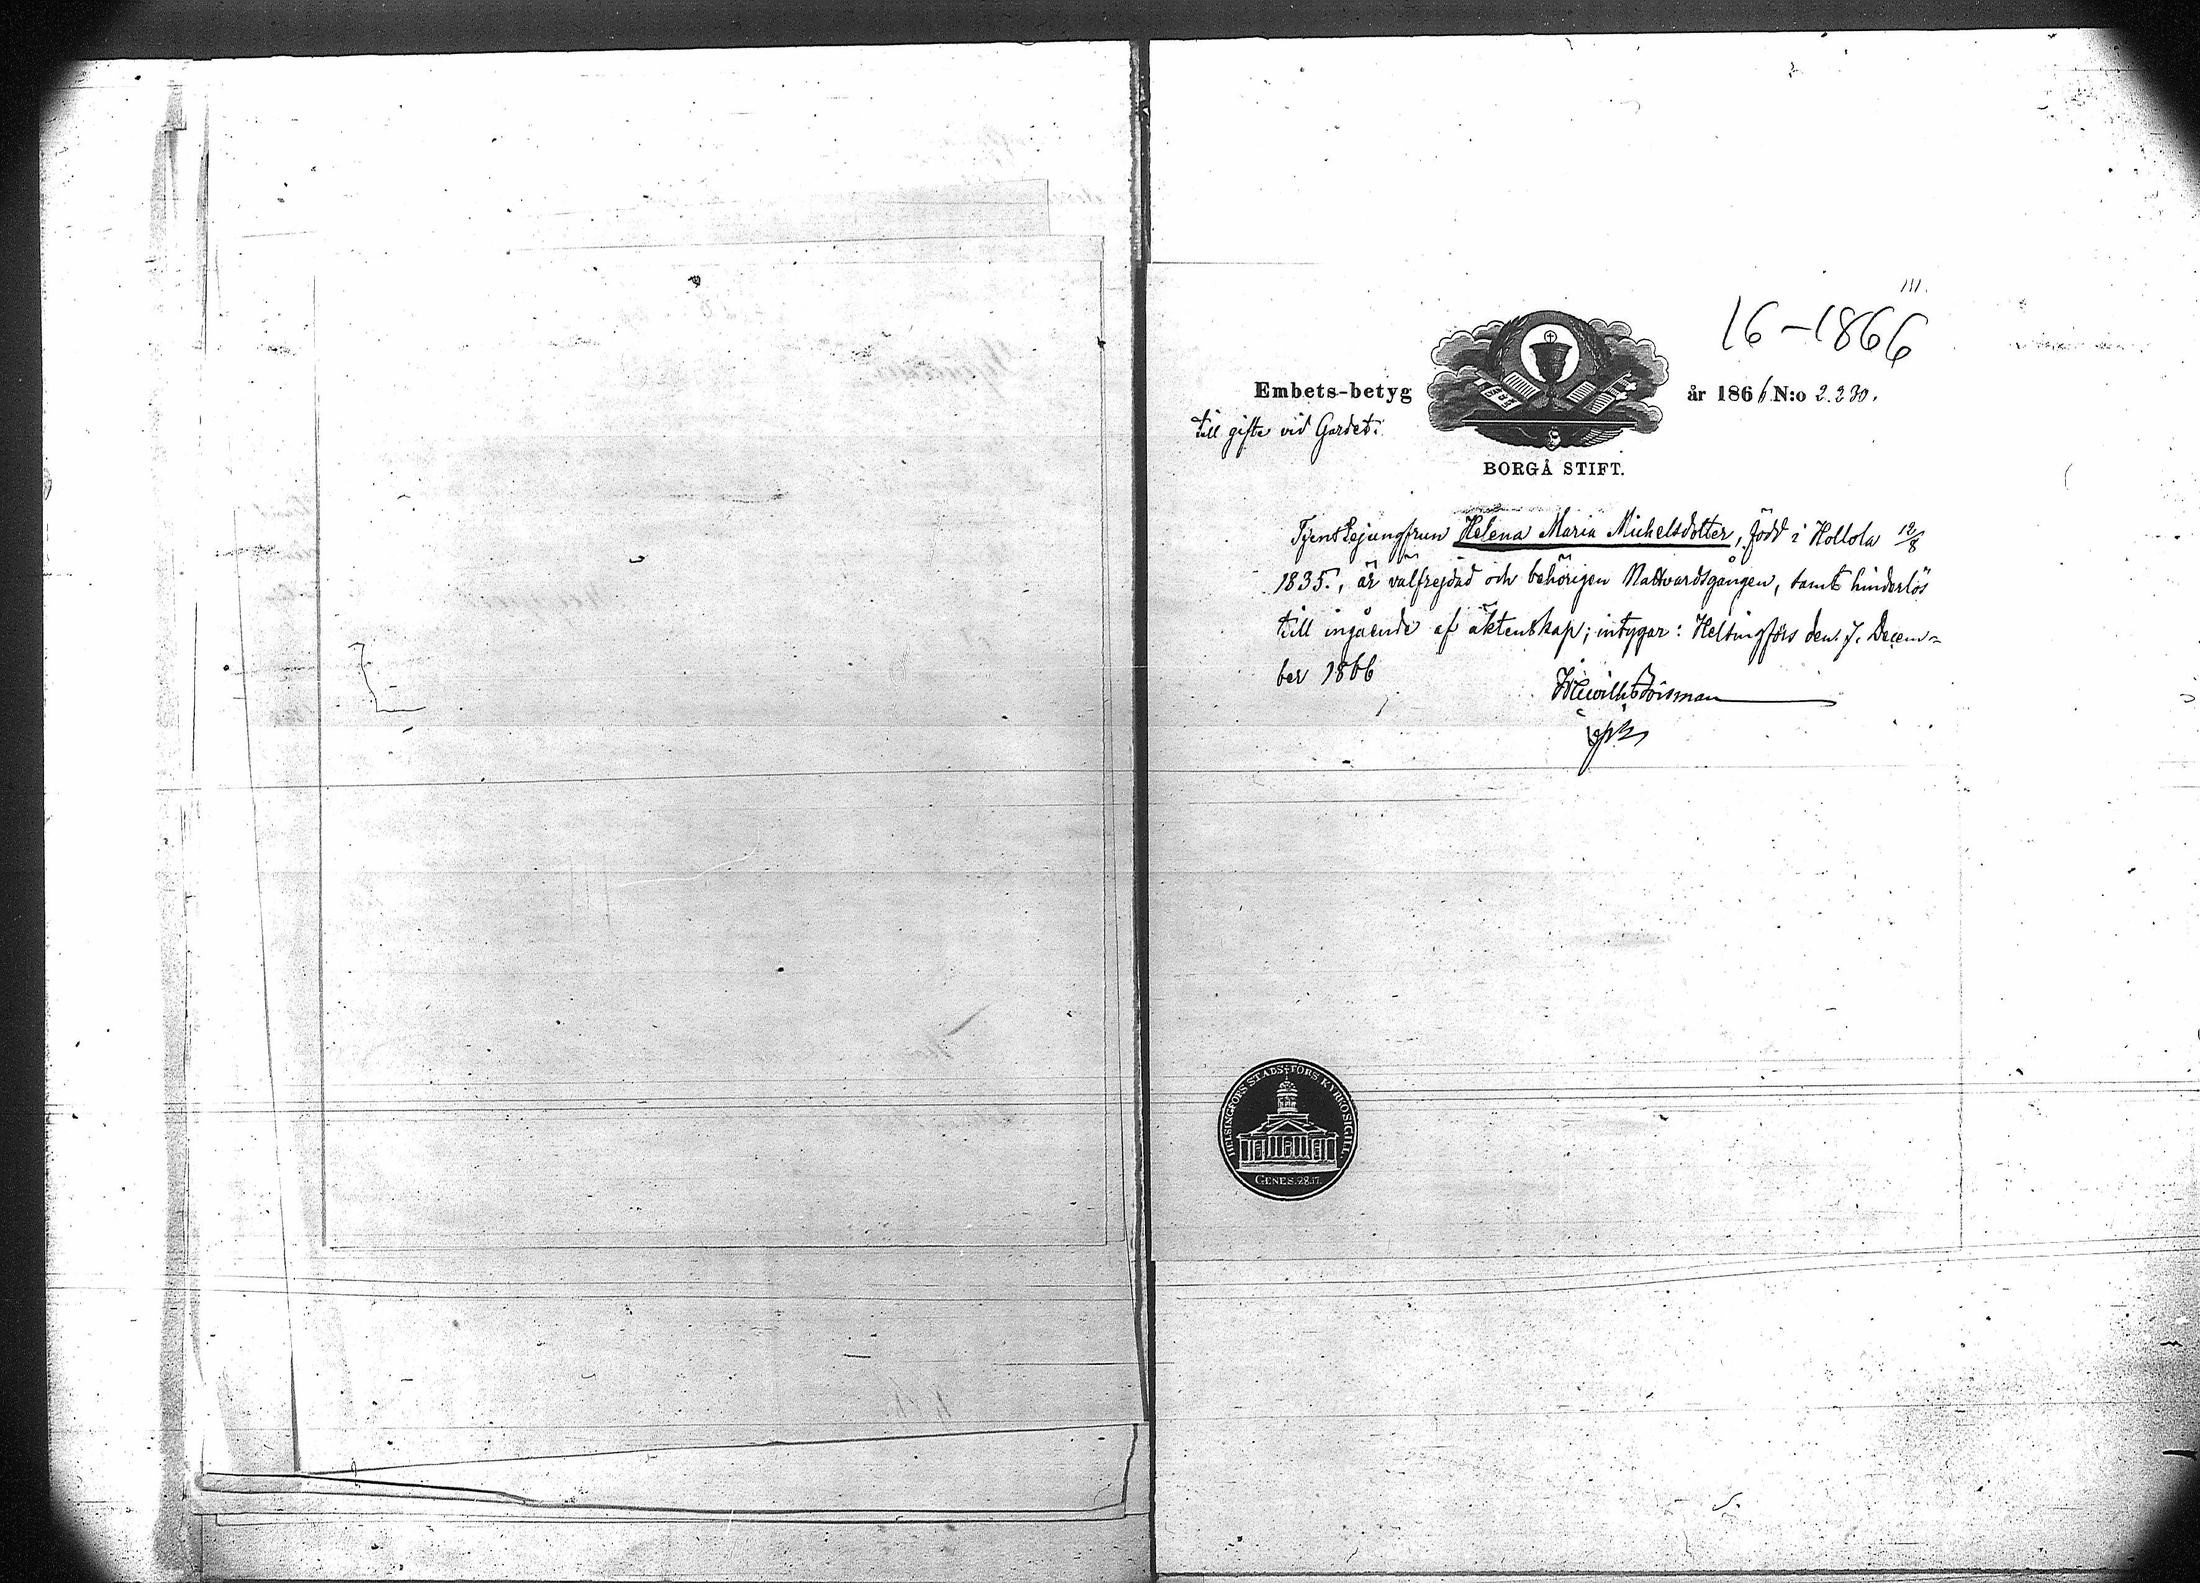 111.
16-1866
Embets-betyg
år 1866 N:o 2.230.
till gifte vid Gardet.
BORGÅ STIFT.
Tjenstejungfrun Helena Maria Michelsdotter, född i Hollola 12/8
1835., är välfrejdad och behörigen Nattvardsgången, samt hinderlös
till ingående af äktenskap; intygar: Helsingfors den 7. Decem-
ber 1866
Forsman
HELSINGFORS STADS FÖRS. KYRKOSIGILL.
GENES. 28.17.